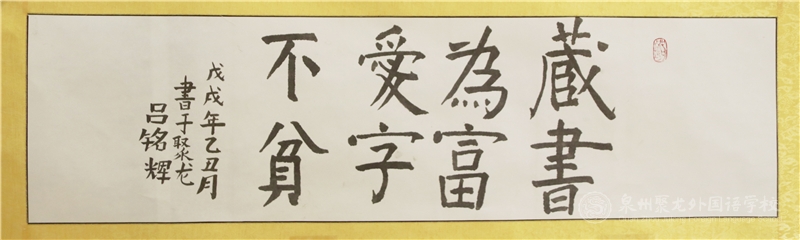 蔵書
為富
愛字
不貧
戊戌年乙丑月
書于聚龙
吕铭輝
泉州聚龙外国语学校